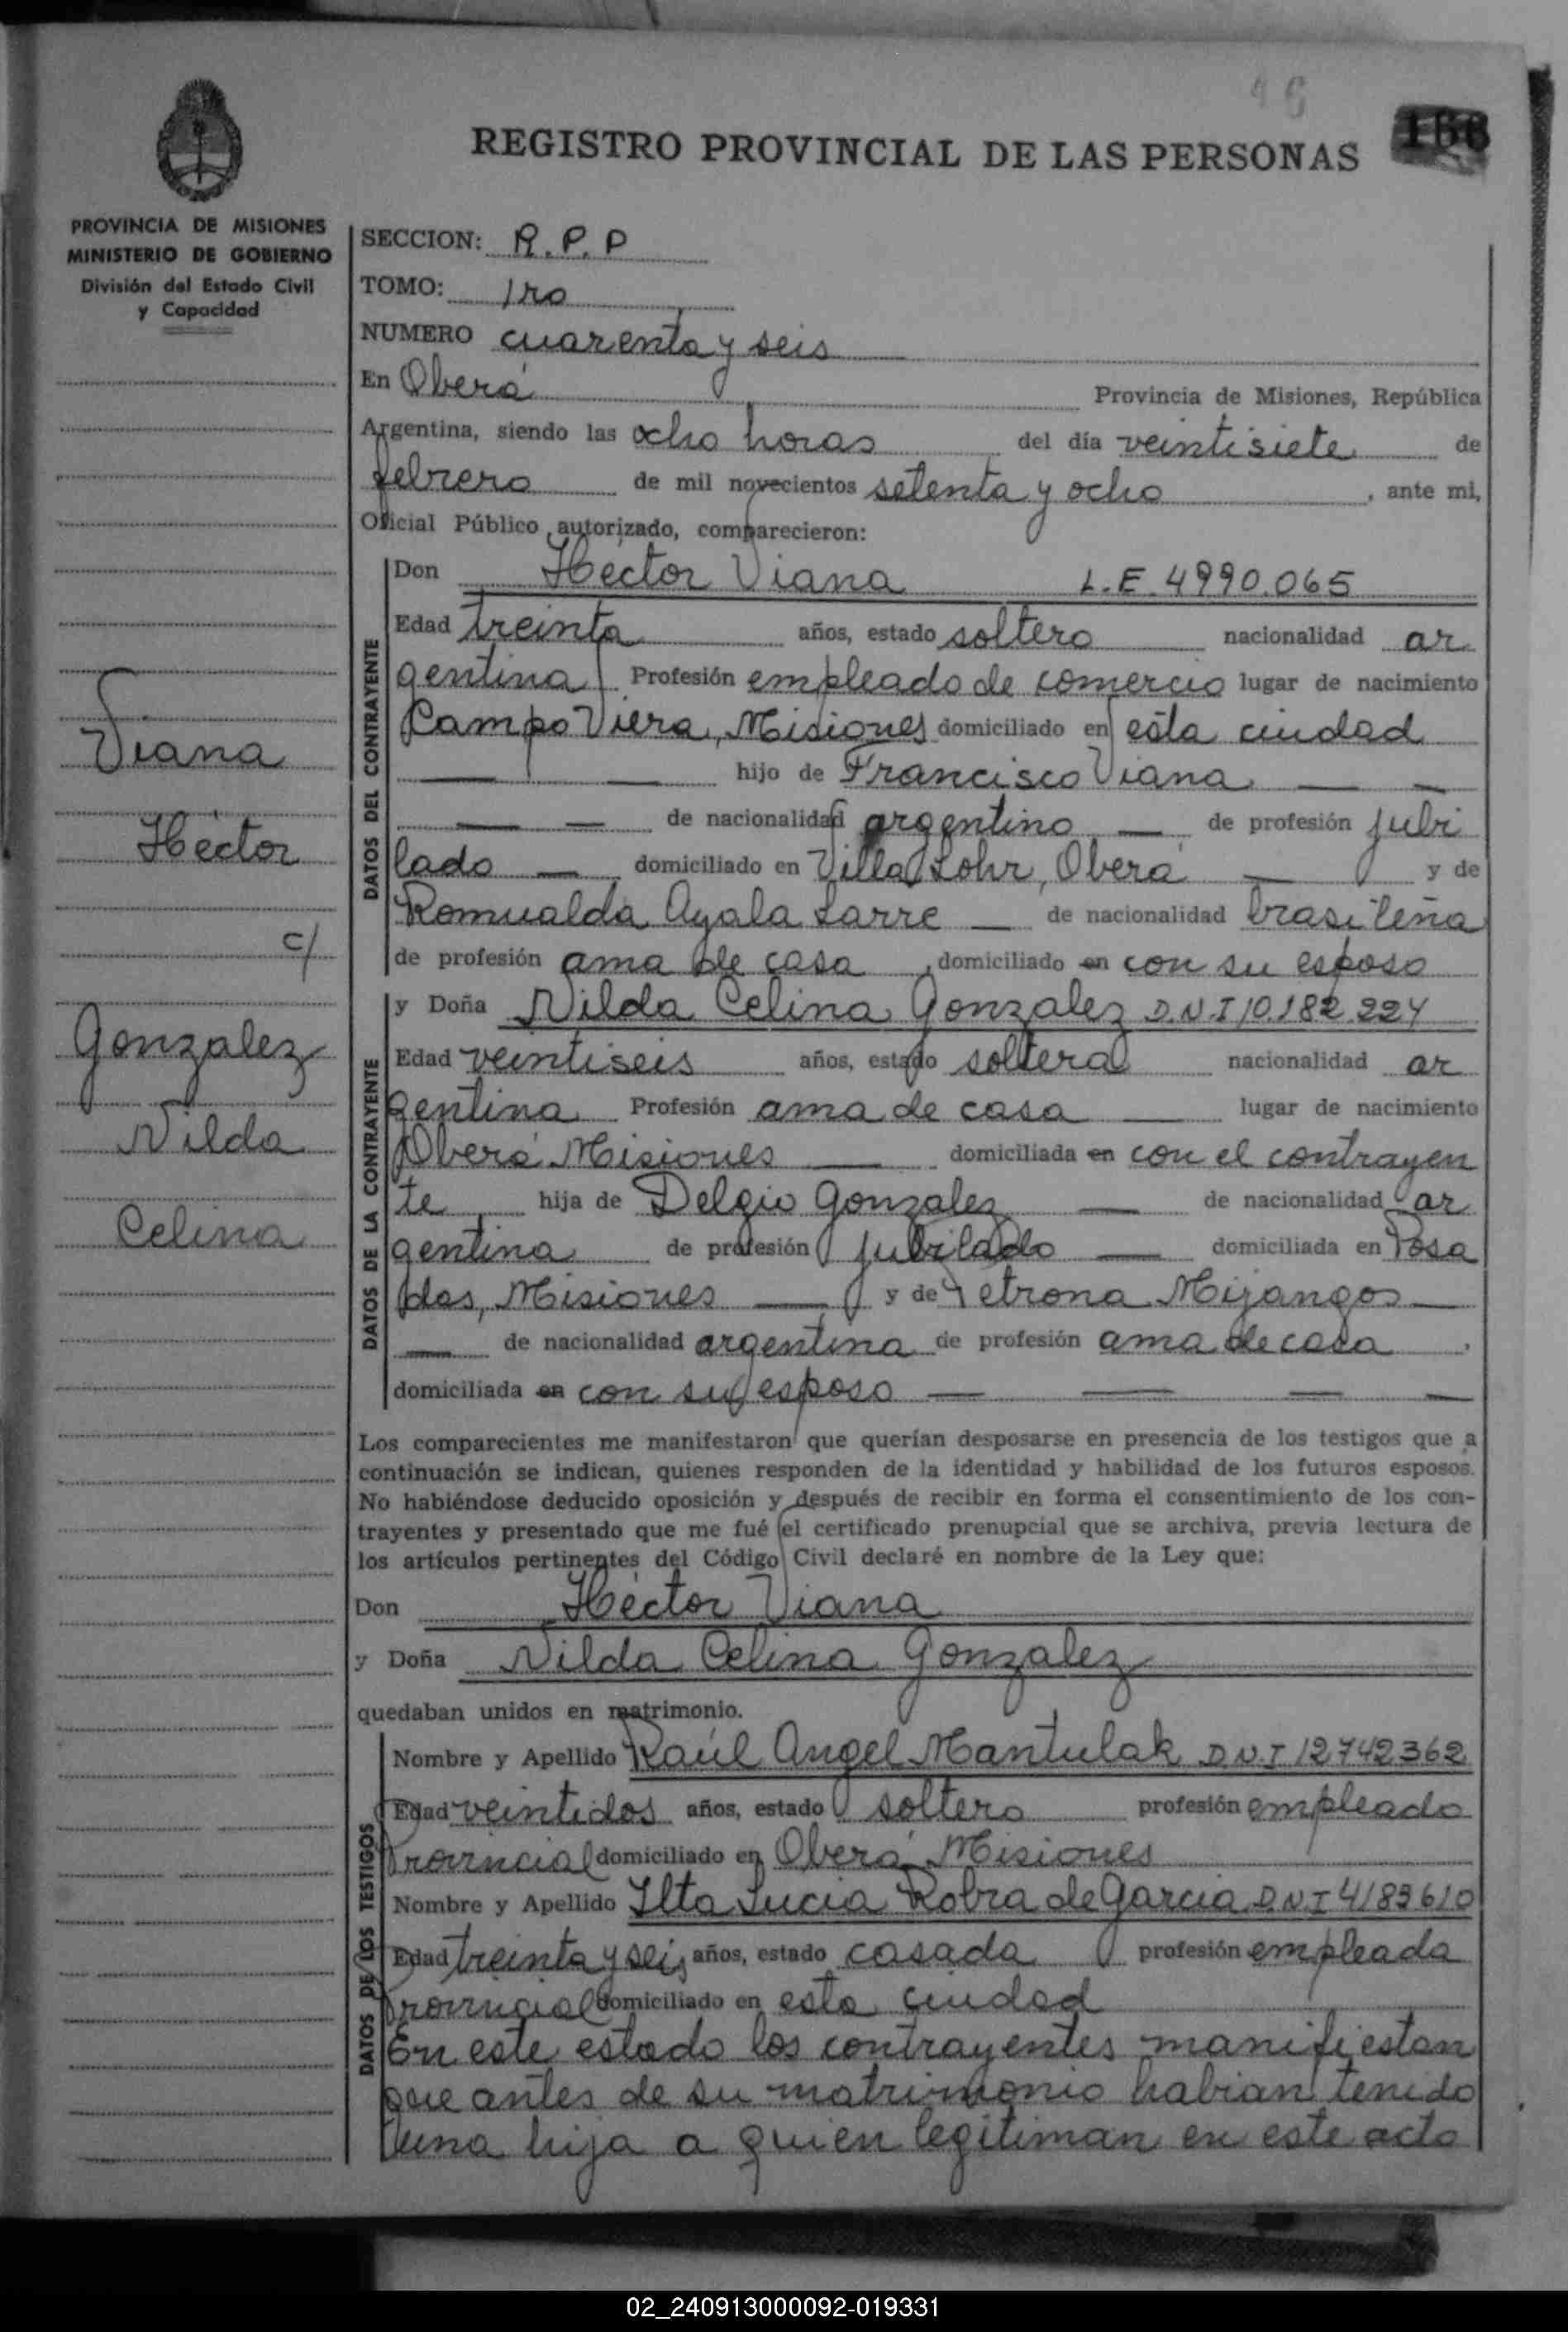 46
166
REGISTRO PROVINCIAL DE LAS PERSONAS
PROVINCIA DE MISIONES
MINISTERIO DE GOBIERNO
División del Estado Civil
y Capacidad
Viana
Héctor
c/
Gonzalez
Nilda
Celina
SECCION: R.P.P
TOMO: 1ro
NUMERO cuarenta y seis
En Oberá Provincia de Misiones, República
Argentina, siendo las ocho horas del día veintisiete de
febrero de mil novecientos setenta y ocho, ante mi,
Oficial Público autorizado, comparecieron:
DATOS DEL CONTRAYENTE
Don Héctor Viana L.E. 4990.065
Edad treinta años, estado soltero nacionalidad ar
gentina Profesión empleado de comercio lugar de nacimiento
Campo Viera, Misiones domiciliado en esta ciudad
— — hijo de Francisco Viana — —
— — de nacionalidad argentino — de profesión jubi
lado — domiciliado en Villa Lohr, Oberá — y de
Romualda Ayala Larre — de nacionalidad brasileña
de profesión ama de casa, domiciliado en con su esposo
DATOS DE LA CONTRAYENTE
y Doña Nilda Celina Gonzalez D.N.I 10.182.224
Edad veintiseis años, estado soltera nacionalidad ar
gentina Profesión ama de casa — lugar de nacimiento
Oberá Misiones — domiciliada en con el contrayen
te hija de Delgio Gonzalez — de nacionalidad ar
gentina de profesión jubilado — domiciliada en Posa
das, Misiones — y de Petrona Mijangos —
— de nacionalidad argentina de profesión ama de casa,
domiciliada en con su esposo — — — —
Los comparecientes me manifestaron que querían desposarse en presencia de los testigos que a
continuación se indican, quienes responden de la identidad y habilidad de los futuros esposos.
No habiéndose deducido oposición y después de recibir en forma el consentimiento de los con-
trayentes y presentado que me fué el certificado prenupcial que se archiva, previa lectura de
los artículos pertinentes del Código Civil declaré en nombre de la Ley que:
Don Héctor Viana
y Doña Nilda Celina Gonzalez
quedaban unidos en matrimonio.
DATOS DE LOS TESTIGOS
Nombre y Apellido Raúl Angel Mantulak D.N.I 12742362
Edad veintidos años, estado soltero profesión empleado
Provincial domiciliado en Oberá Misiones
Nombre y Apellido Ilta Lucia Robra de Garcia D.N.I 4183610
Edad treinta y seis años, estado casada profesión empleada
Provincial domiciliado en esta ciudad
En este estado los contrayentes manifiestan
que antes de su matrimonio habian tenido
una hija a quien legitiman en este acto
02_240913000092-019331